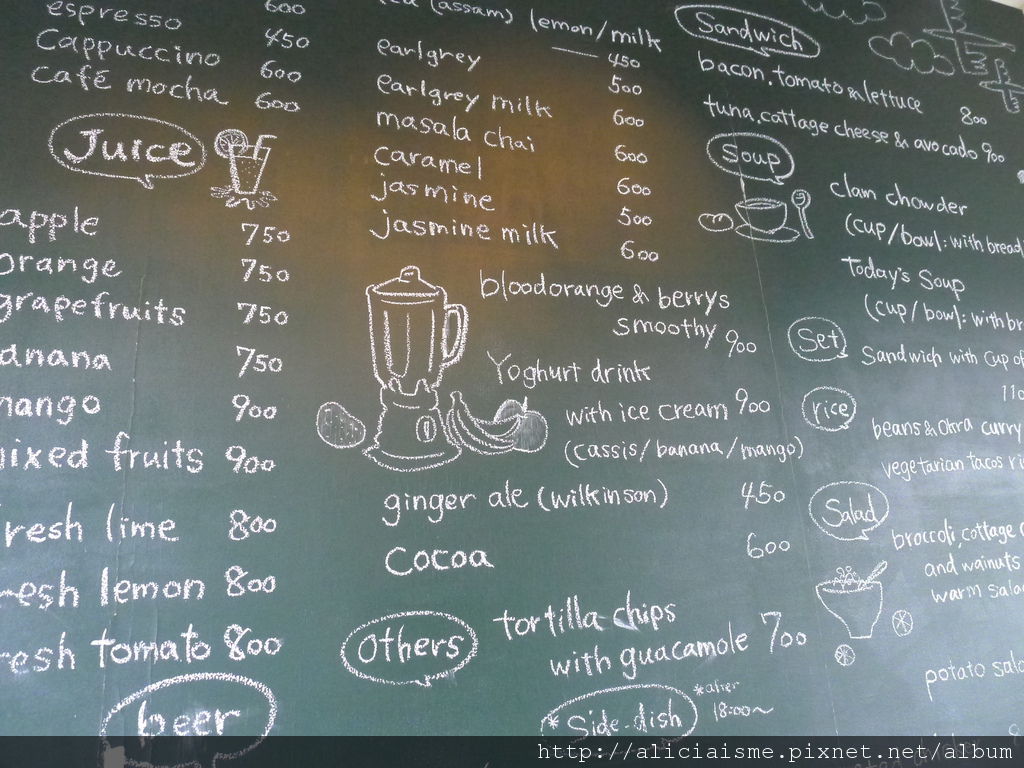 espresso 600
Cappuccino 450
café mocha 600
600
Juice
apple 750
orange 750
grapefruits 750
anana 750
mango 900
ixed fruits 900
resh lime 800
resh lemon 800
resh tomato 800
beer
(assam) (lemon/milk
450
earlgrey 500
earlgrey milk 600
masala chai 600
caramel 600
jasmine 500
jasmine milk 600
bloodorange & berrys
smoothy 900
Yoghurt drink
with ice cream 900
(cassis/banana/mango)
ginger ale (wilkinson) 450
Cocoa 600
Others
tortilla chips
with guacamole 700
*Side-dish
*after
18:00~
Sandwich
bacon.tomato & lettuce 800
tuna,cottage cheese & avocado 900
Soup
clam chowder
(cup/bowl: with bread
Today's Soup
(cup/bowl: with br
Set
Sandwich with Cup of
110
rice
beans & Okra curry
vegetarian tacos ri
Salad
broccoli,cottage c
and walnuts
warm salad
potato sala
http://aliciaisme.pixnet.net/album